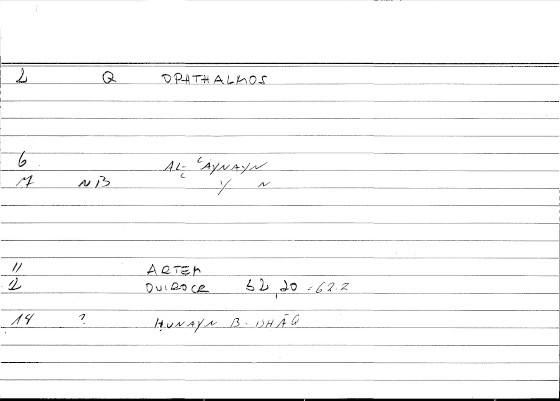 2 Q OPHTHALMOS
6 AL- ʿAYNAYN
17 NB Y N
11 ARTEM
2 DVIROCR 62,20 = 62.2
14 ? ḤUNAYN B. ISHĀQ